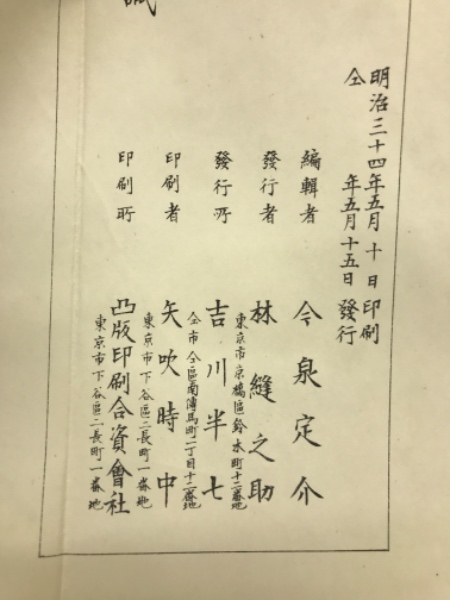 明治三十四年五月十日印刷
仝年五月十五日發行
編輯者 今泉定介
發行者 林縫之助
東京市京橋區鈴木町十二番地
發行所 吉川半七
仝市仝區南傳馬町一丁目十二番地
印刷者 矢吹時中
東京市下谷區二長町一番地
印刷所 凸版印刷合資會社
東京市下谷區二長町一番地